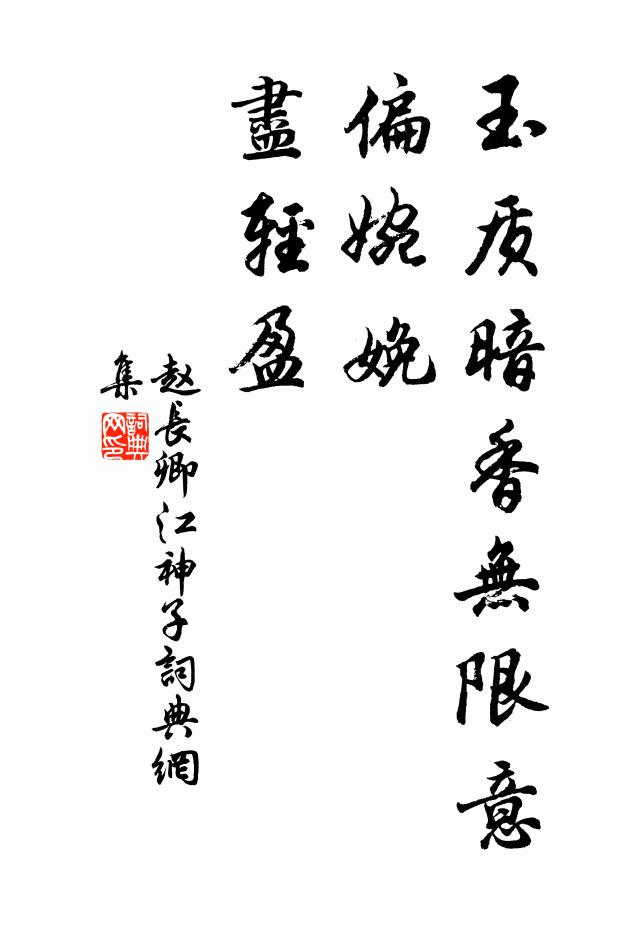 玉质暗香無限意
偏婉娩
盡輕盈
赵長卿江神子詞典網
集
詞典
网印